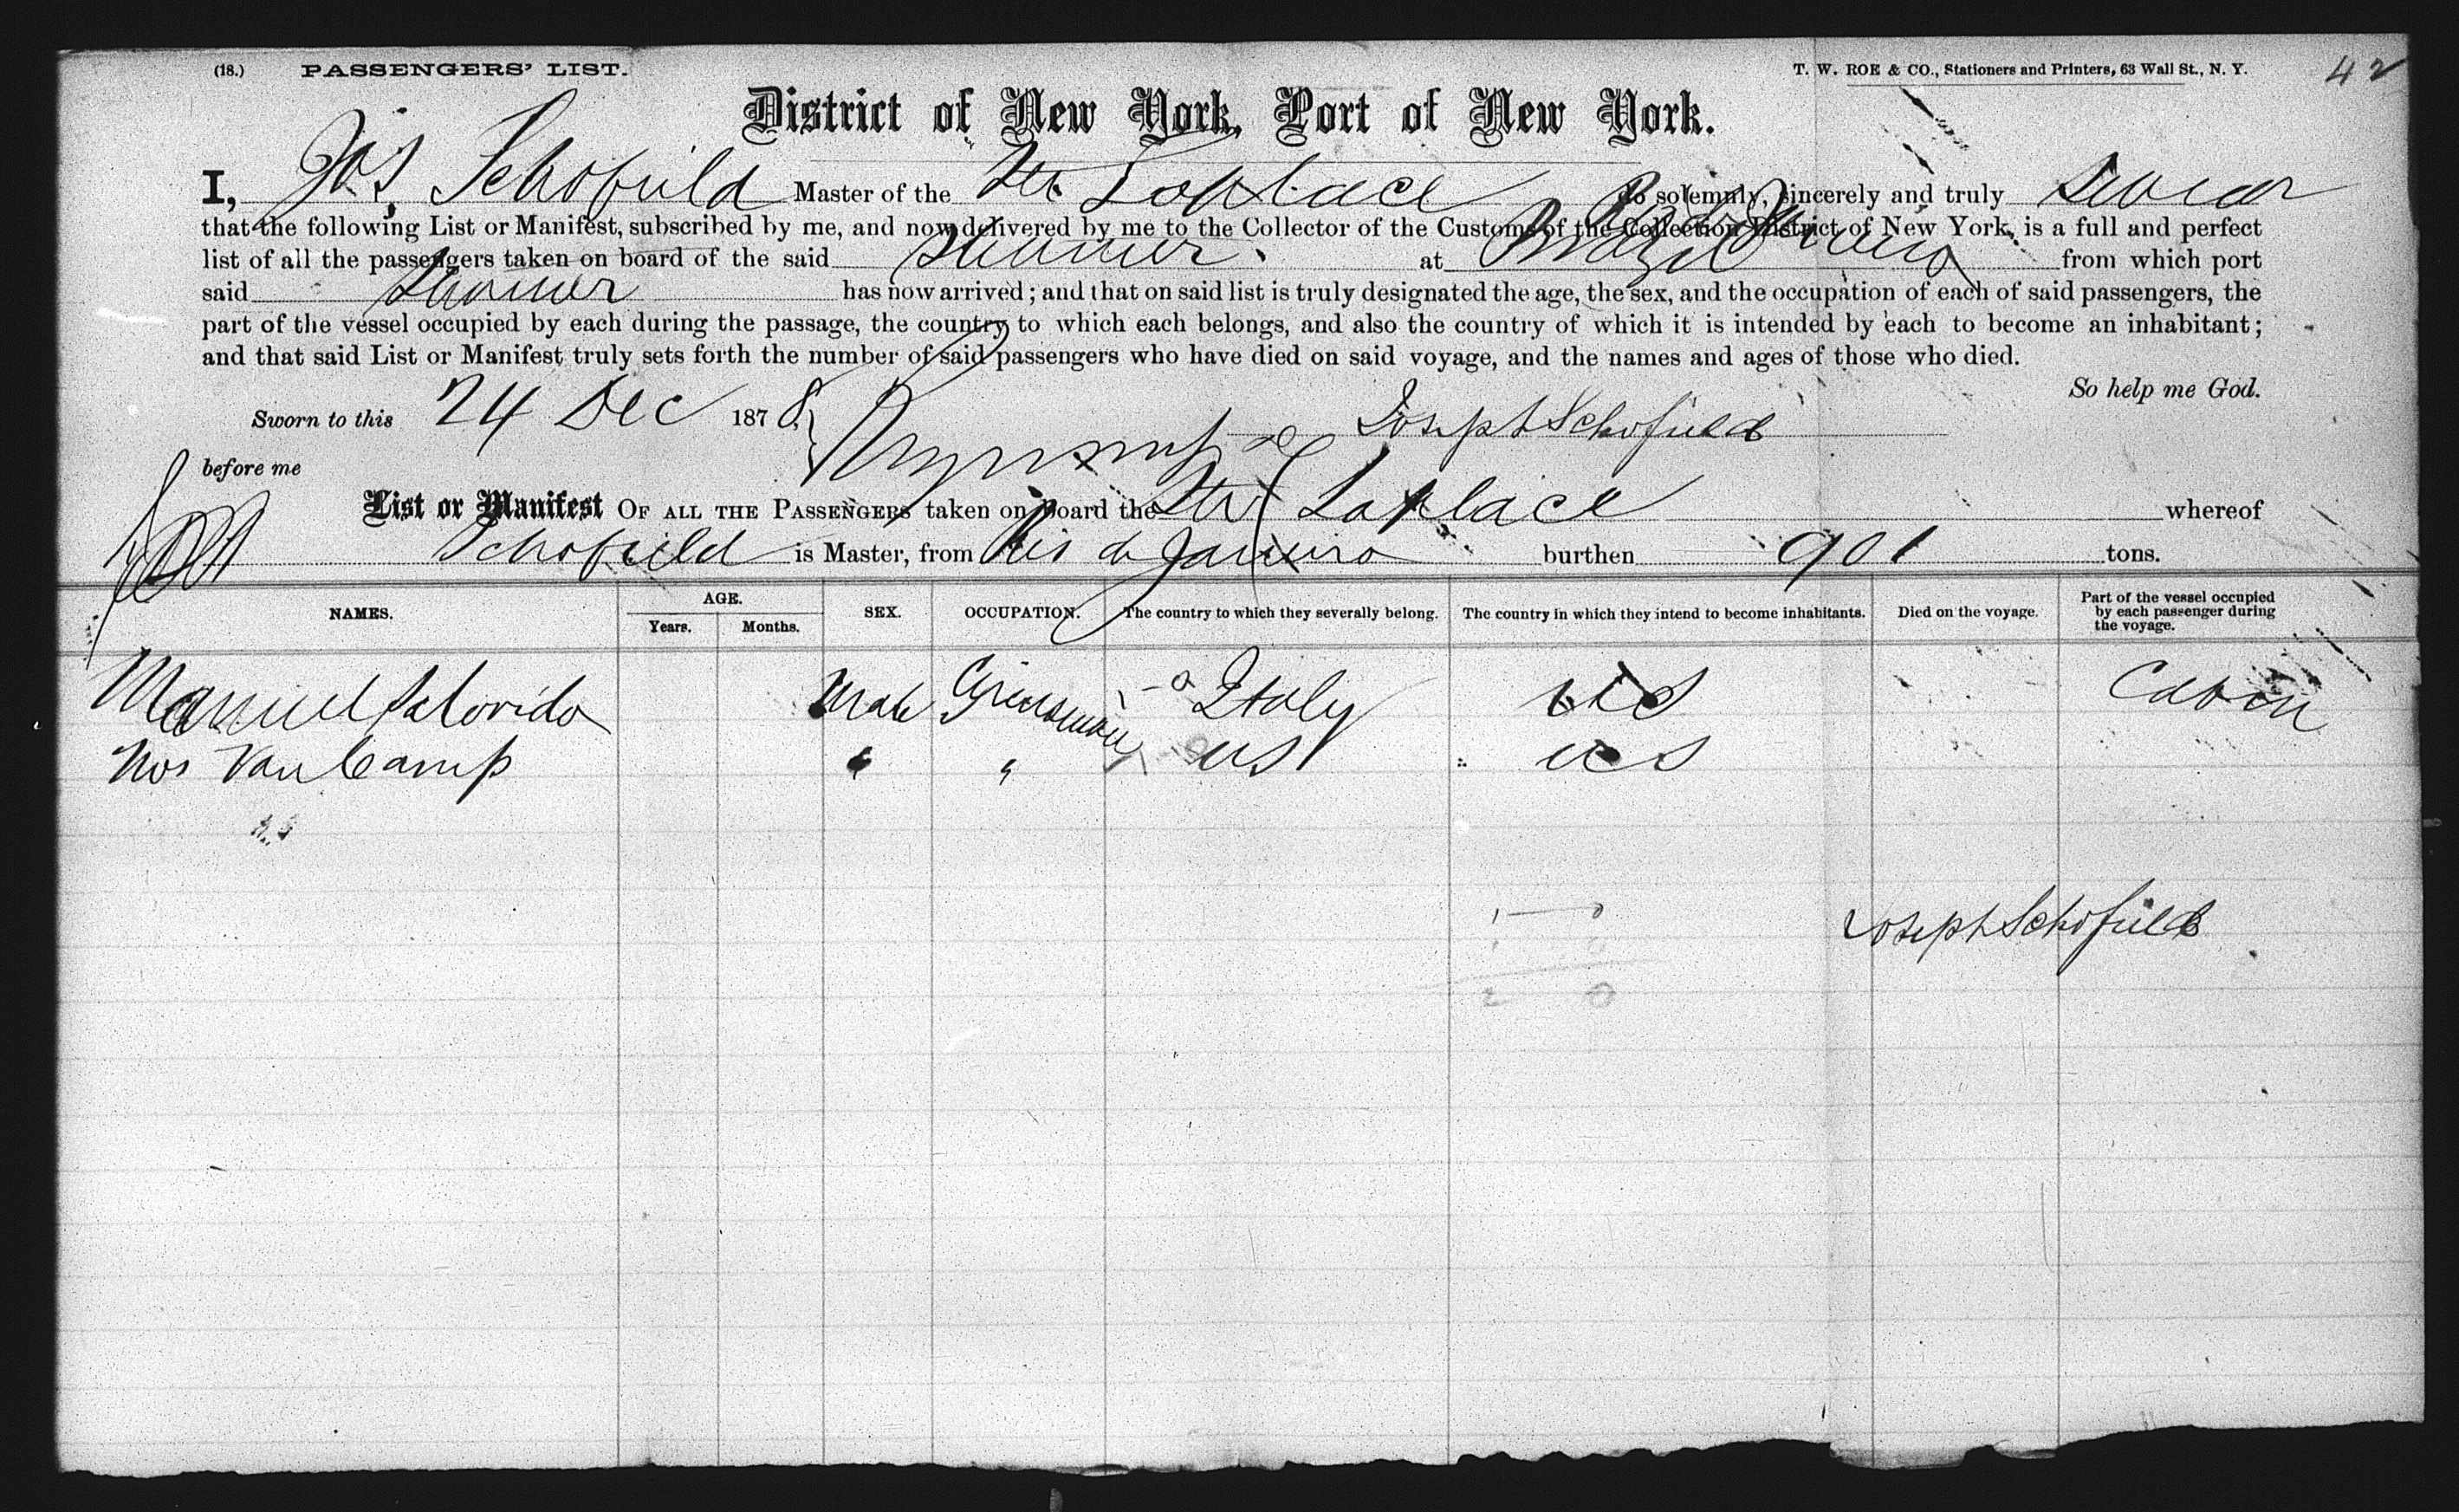 (18.) PASSENGERS' LIST. T. W. ROE & CO., Stationers and Printers, 63 Wall St., N. Y. 42
District of New York, Port of New York.
I, Jos. Schofield Master of the Str. Laplace do solemnly, sincerely and truly swear
that the following List or Manifest, subscribed by me, and now delivered by me to the Collector of the Customs of the Collection District of New York, is a full and perfect
list of all the passengers taken on board of the said steamer at Rio de Janeiro Brazil from which port
said steamer has now arrived; and that on said list is truly designated the age, the sex, and the occupation of each of said passengers, the
part of the vessel occupied by each during the passage, the country to which each belongs, and also the country of which it is intended by each to become an inhabitant;
and that said List or Manifest truly sets forth the number of said passengers who have died on said voyage, and the names and ages of those who died.
So help me God.
Sworn to this 24 Dec 1878 Joseph Schofield
before me
List or Manifest OF ALL THE PASSENGERS taken on board the Str Laplace whereof
Schofield is Master, from Rio de Janeiro burthen 901 tons.
NAMES. AGE. Years. Months. SEX. OCCUPATION. The country to which they severally belong. The country in which they intend to become inhabitants. Died on the voyage. Part of the vessel occupied by each passenger during the voyage.
Manuel Male Italy US Cabin
Van Camp " " US US
1 0
1 0
2 0
Joseph Schofield